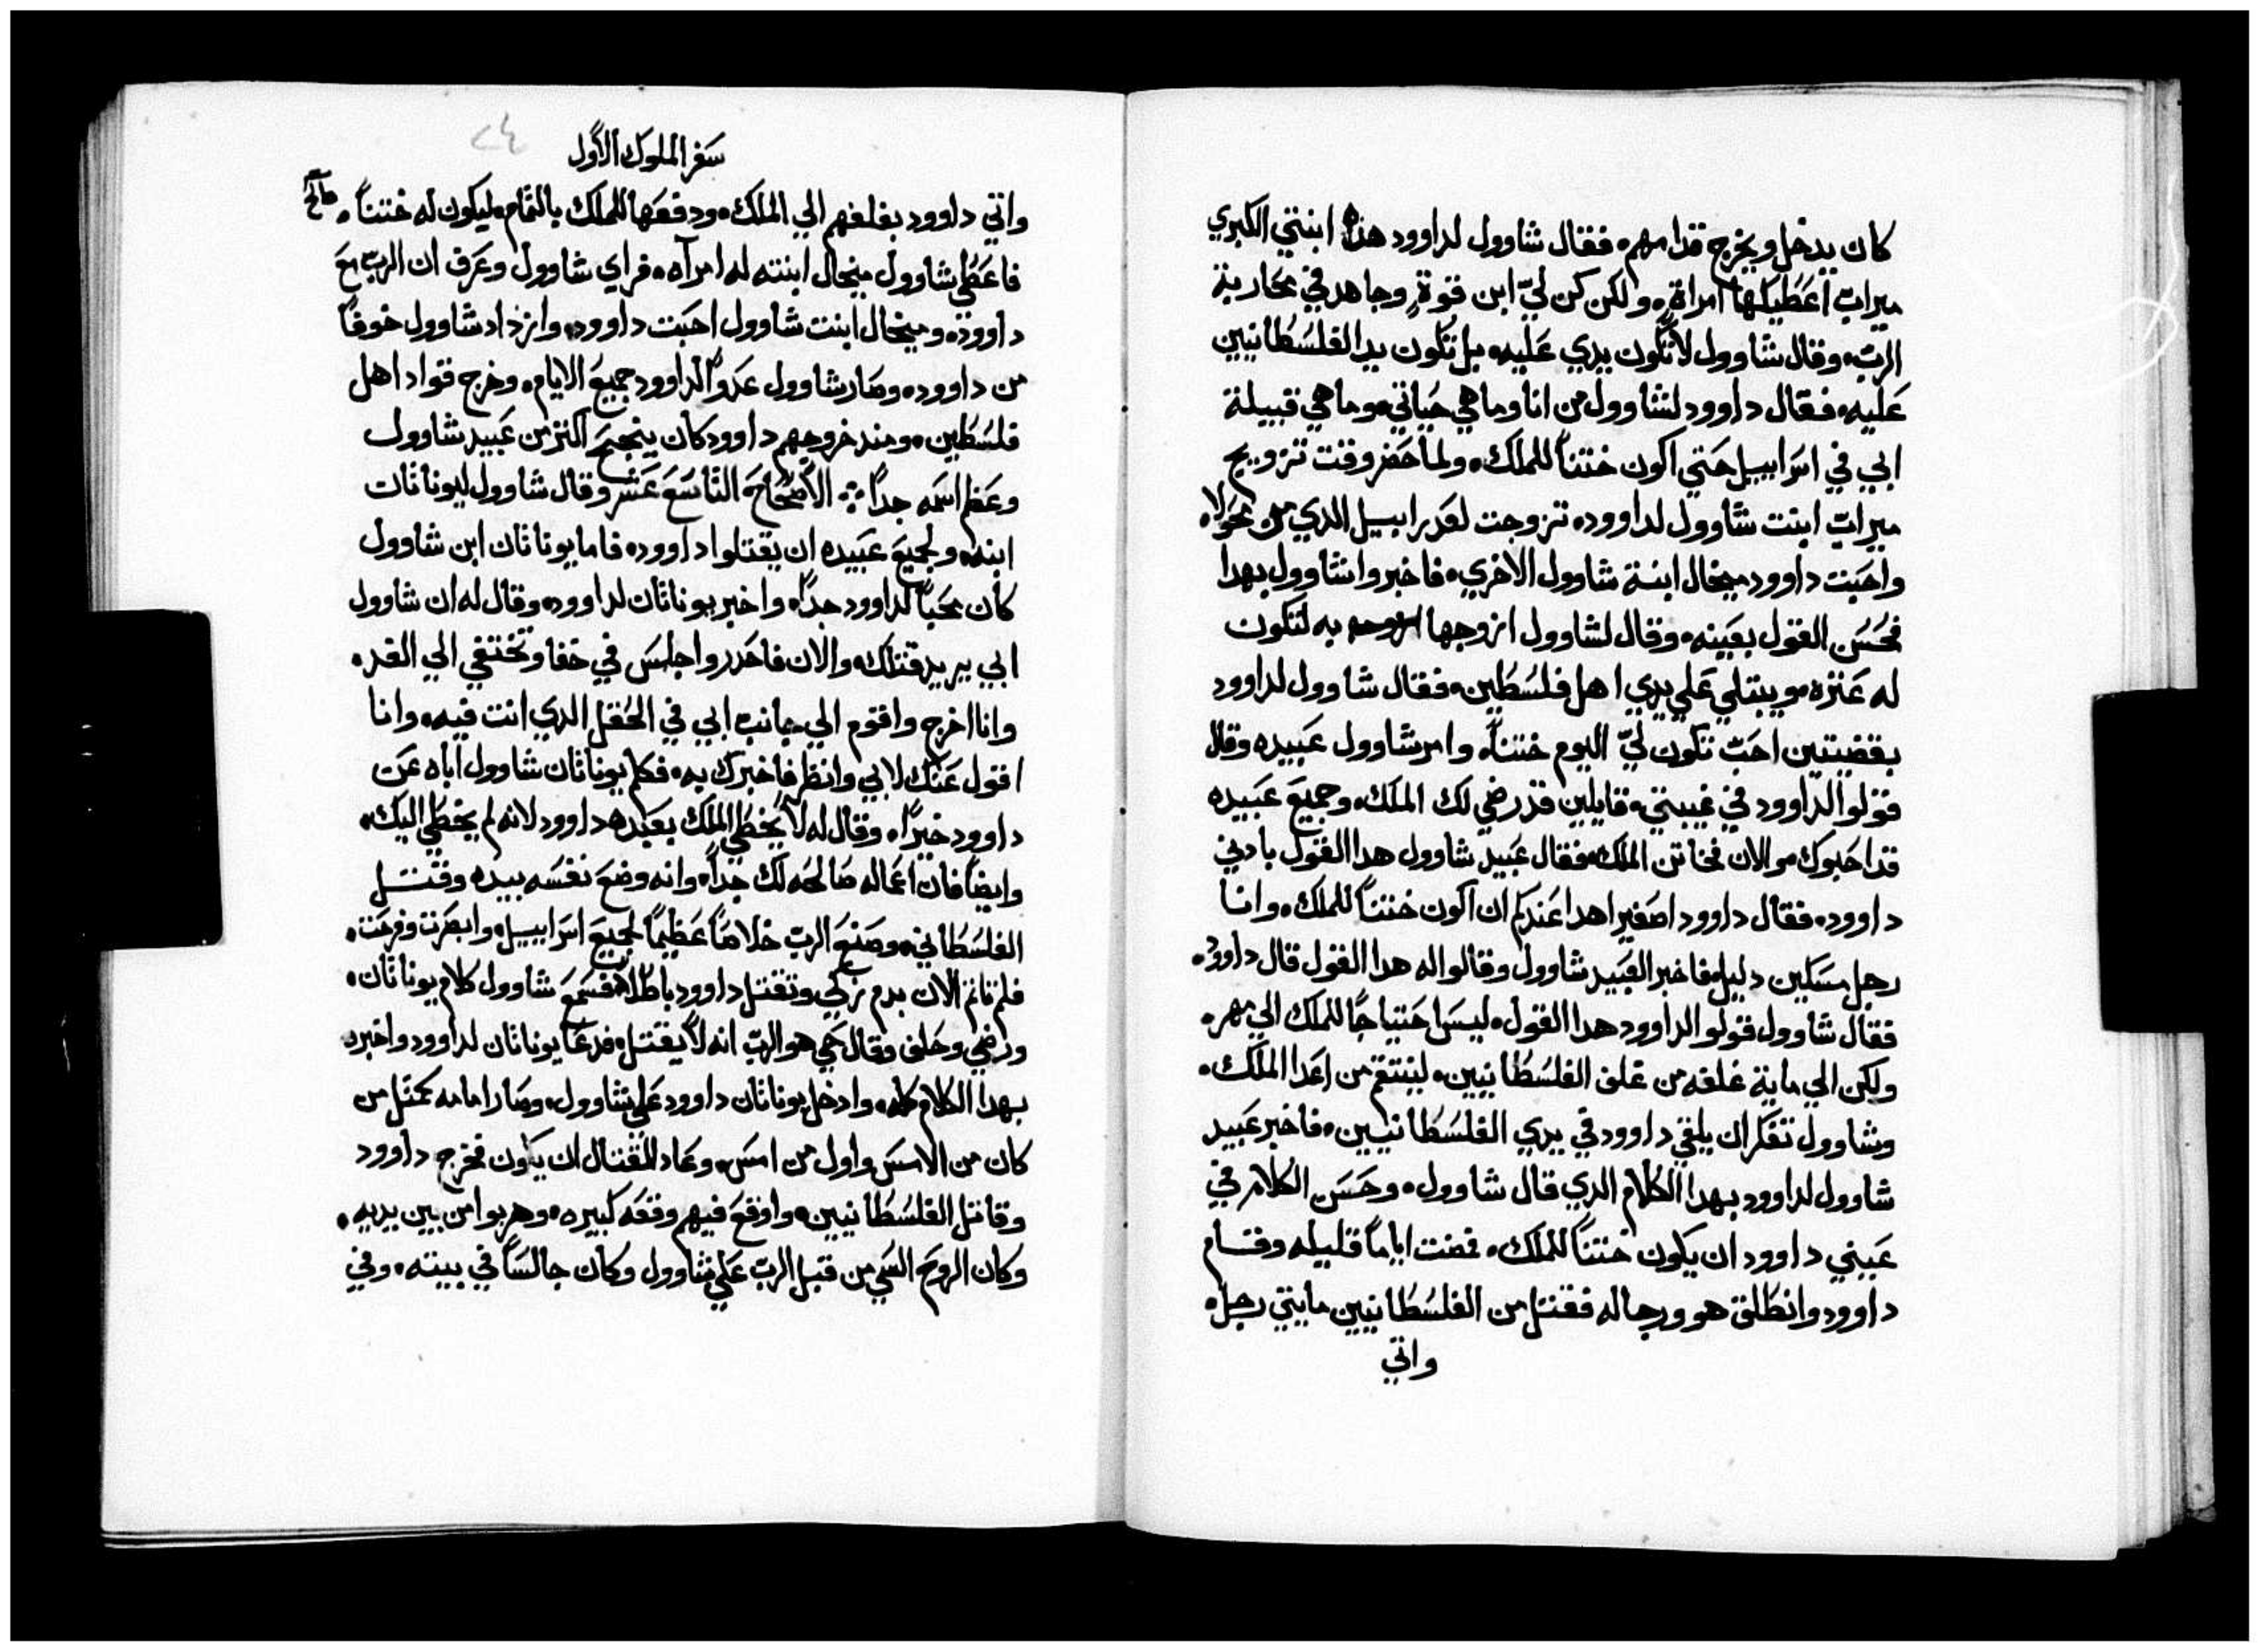 كان يدخل ويخرج قدامهم، فقال شاوول لداوود هذه ابنتي الكبري
ميراب اعطيكها امراة، ولكن كن ليّ ابن قوةٍ وجاهد في محاربة
الربّ، وقال شاوول لا تكون يدي عليه، بل تكون يد الفلسطانيين
عليه، فقال داوود لشاوول من انا وما هي حياتي، وما هي قبيلة
ابي في اسراييل حتي اكون ختناً للملك، ولما حضر وقت تزويج
ميراب ابنت شاوول لداوود، تزوجت لعدراييل الدي من محولاه
واحبت داوود ميخال ابنة شاوول الاخري، فاخبروا شاوول بهدا
فحسن القول بعينه، وقال لشاوول ازوجها به لتكون
له عتره، ويبتلي علي يدي اهل فلسطين، فقال شاوول لداوود
بقضيتين احبّ تكون ليّ اليوم ختناً، وامر شاوول عبيده وقال
قولوا لداوود في غيبتي، قايلين قد رضي لك الملك، وجميع عبيده
قد احبوك، والان فخاتن الملك، فقال عبيد شاوول هدا القول بادني
داوود، فقال داوود اصغيرا هدا عندكم ان اكون ختناً للملك، وانا
رجل مسكين دليل، فاخبر العبيد شاوول وقالوا له هدا القول قال داوود،
فقال شاوول قولوا لداوود هدا القول، ليس احتياجاً للملك الي مهر،
ولكن الي ماية غلفه من غلف الفلسطانيين، لينتقم من اعدا الملك،
وشاوول تفكر ان يلقي داوود في يدي الفلسطانيين، فاخبر عبيد
شاوول لداوود بهدا الكلام الدي قال شاوول، وحسن الكلام في
عيني داوود ان يكون ختناً للملك، فمضت اياماً قليله وقام
داوود وانطلق هو ورجاله فقتل من الفلسطانيين مايتي رجل،
واتي
سفر الملوك الاول
واتي داوود بغلفهم الي الملك، ودفعها للملك بالتمام، ليكون له ختناً،
فاعطي شاوول ميخال ابنته له امرآه، فراي شاوول وعرف ان الربّ مع
داوود، وميخال ابنت شاوول احبت داوود، وازداد شاوول خوفاً
من داوود، وصار شاوول عدواً لداوود جميع الايام، وخرج قواد اهل
فلسطين، ومند خروجهم داوود كان ينجح اكثر من عبيد شاوول
وعظم اسمه جداً الاصحاح التاسع عشر وقال شاوول ليوناثان
ابنه، ولجميع عبيده ان يقتلوا داوود، فاما يوناثان ابن شاوول
كان محباً لداوود جداً، واخبر يوناثان لداوود، وقال له ان شاوول
ابي يريد قتلك، والان فاحدر واجلس في خفا وتختفي الي الغد،
وانا اخرج واقوم الي جانب ابي في الحقل الدي انت فيه، وانا
اقول عنك لابي وانظر فاخبرك به، فكلم يوناثان شاوول اباه عن
داوود خيراً، وقال له لا يخطي الملك بعبده داوود لانه لم يخطي اليك،
وايضاً فان اعماله صالحه لك جداً، وانه وضع نفسه بيده وقتل
الفلسطاني، وصنع الربّ خلاصاً عظيماً لجميع اسراييل، وابصرت وفرحت،
فلم تاثم الان بدم زكي وتقتل داوود باطلاً، فسمع شاوول كلام يوناثان،
ورضي وحلف وقال حي هو الربّ انه لا يقتل، فدعا يوناثان لداوود واخبره
بهدا الكلام كله، وادخل يوناثان داوود علي شاوول، وصار امامه كمثل من
كان من الامس واول من امس، وعاد القتال ان يكون فخرج داوود
وقاتل الفلسطانيين، واوقع فيهم وقعه كبيره، وهربوا من بين يديه،
وكان الروح السي من قبل الربّ علي شاوول وكان جالساً في بيته، وفي